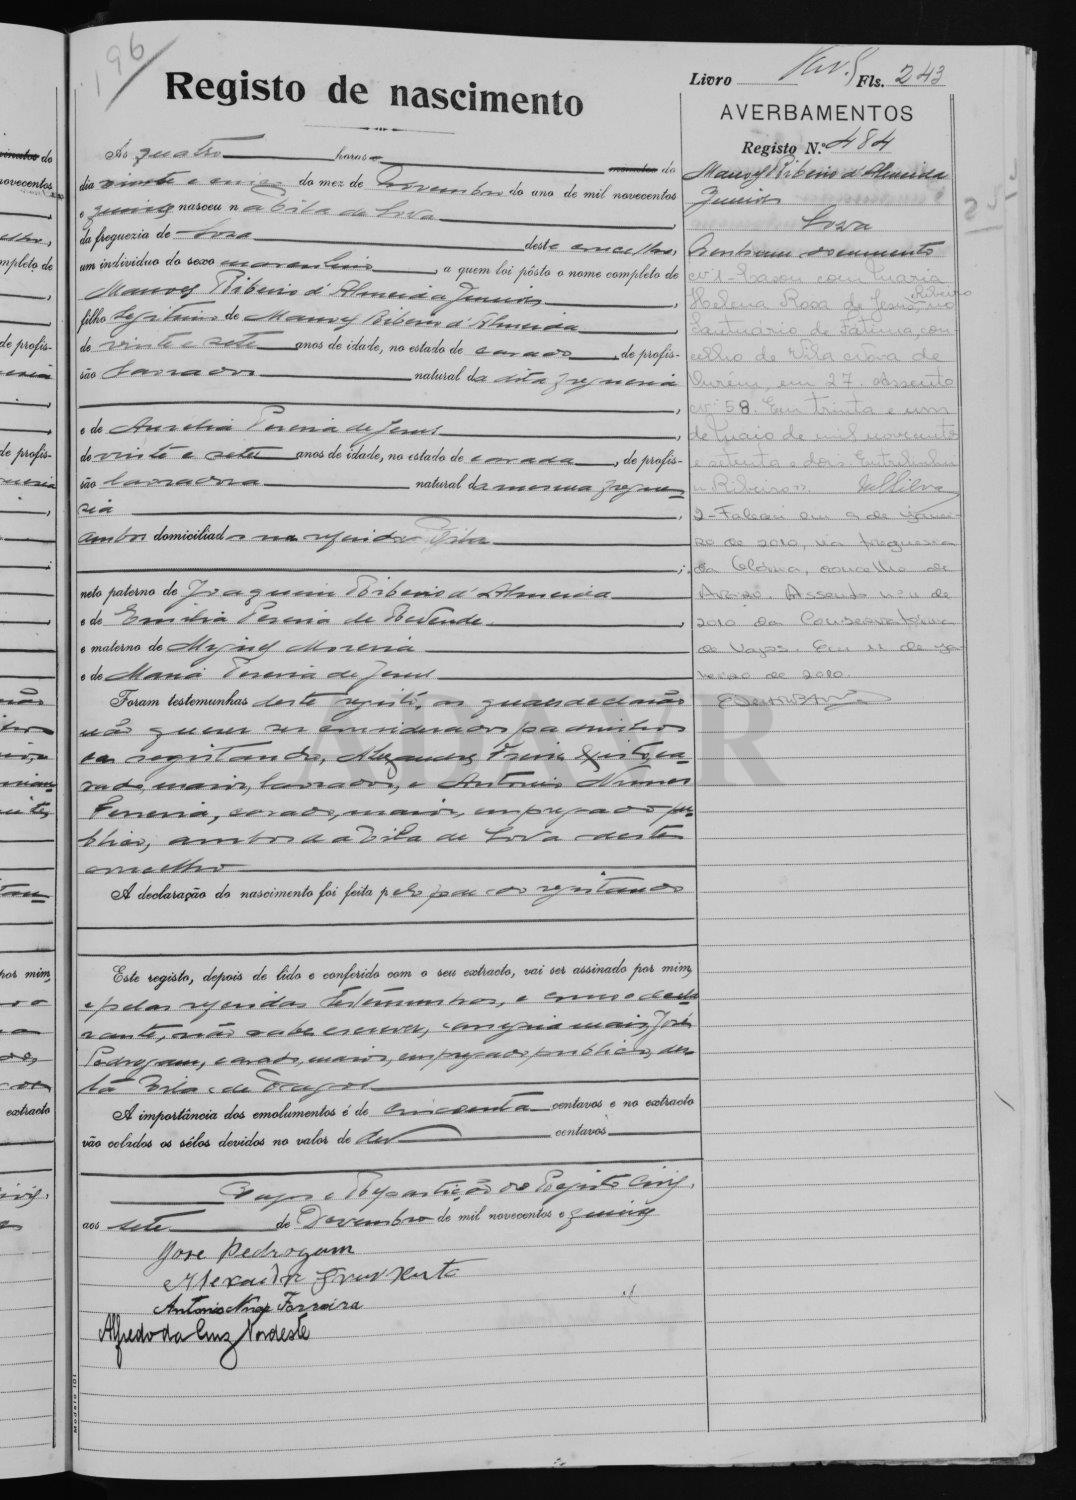 196
Registo de nascimento
Às quatro horas e minutos do
dia vinte e cinco do mez de Novembro do ano de mil novecentos
e quinze nasceu na Vila de Soza
da freguezia de Soza deste concelho,
um individuo do sexo masculino, a quem foi pôsto o nome completo de
Manoel Ribeiro d'Almeida Junior,
filho legitimo de Manoel Ribeiro d'Almeida,
de vinte e sete anos de idade, no estado de casado, de profis-
são lavrador natural da dita freguesia
,
e de Aurelia Pereira de Jesus,
de vinte e sete anos de idade, no estado de casada, de profis-
são lavradora natural da mesma fregue-
sia,
ambos domiciliados na referida Vila
;
neto paterno de Joaquim Ribeiro d'Almeida
e de Emilia Pereira de Rezende,
e materno de Moreira
e de Maria Pereira de Jesus
Foram testemunhas deste registo, as quaes declararão
não querer ser considerados padrinhos
do registando, Alexandre
casado, maior, lavrador, e Antonio Nunes
Ferreira, casado, maior, empregado pu-
blico, ambos da Vila de Soza deste
concelho
A declaração do nascimento foi feita pelo pae do registando
Este registo, depois de lido e conferido com o seu extracto, vai ser assinado por mim,
e pelas referidas testemunhas, e como o decla-
rante, não sabe escrever, assigna mais, José
Pedrogam, casado, maior, empregado publico, des-
ta Vila de Vagos
A importância dos emolumentos é de cincoenta centavos e no extracto
vão colados os sêlos devidos no valor de dez centavos
Vagos e Repartição do Registo Civil,
aos sete de Dezembro de mil novecentos e quinze
José Pedrogam
Alexandre
Antonio Nunes Ferreira
Alfredo da Cruz Nordeste
Modelo 101
Livro Fls. 243
AVERBAMENTOS
Registo N.º 484
Manoel Ribeiro d'Almeida
Junior
Soza
Nenhum documento
Nº 1 - Casou com Maria
Helena Rosa de Jesus Ribeiro, no
Santuário de Fátima, con-
celho de Vila Nova de
Ourém, em 27. Assento
nº 58. Em trinta e um
de Maio de mil novecentos
e setenta e dois. Entrelinhei
"Ribeiro".
2 - Faleceu em 9 de janei-
ro de 2010, na freguesia
da Glória, concelho de
Aveiro. Assento nº 11 de
2010 da Conservatória
de Vagos. Em 11 de ja-
neiro de 2010.
25
ADAVR